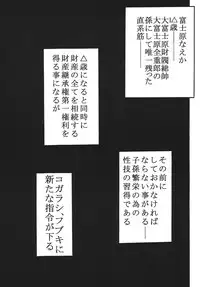 富士原なえか
△歳
大富士原財閥総帥
大富士原全重郎の
孫にして唯一残った
直系筋
△歳になると同時に
財産の全てを相続する
財産継承権第一権利を
得る事になるが
その前に
しておかなければ
ならない事がある――
子孫繁栄の為の
性技の習得である
コガラシ、フブキに
新たな指令が下る